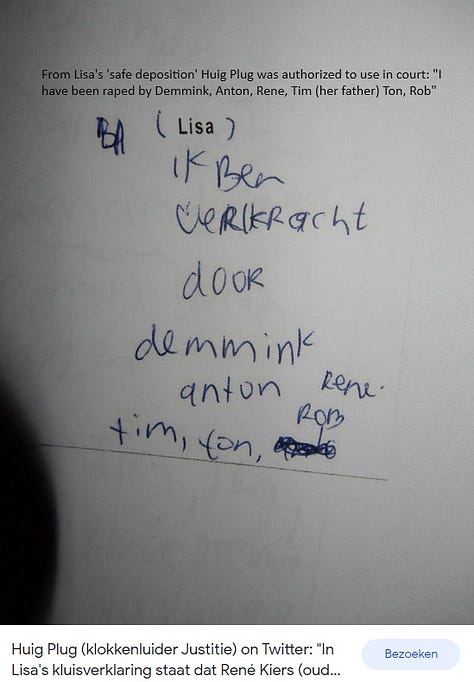 From Lisa's 'safe deposition' Huig Plug was authorized to use in court: "I
have been raped by Demmink, Anton, Rene, Tim (her father) Ton, Rob"
(Lisa)
ik Ben
verkracht
door
demmink
anton Rene.
Rob
tim, ton,
Huig Plug (klokkenluider Justitie) on Twitter: "In
Lisa's kluisverklaring staat dat René Kiers (oud...
Bezoeken